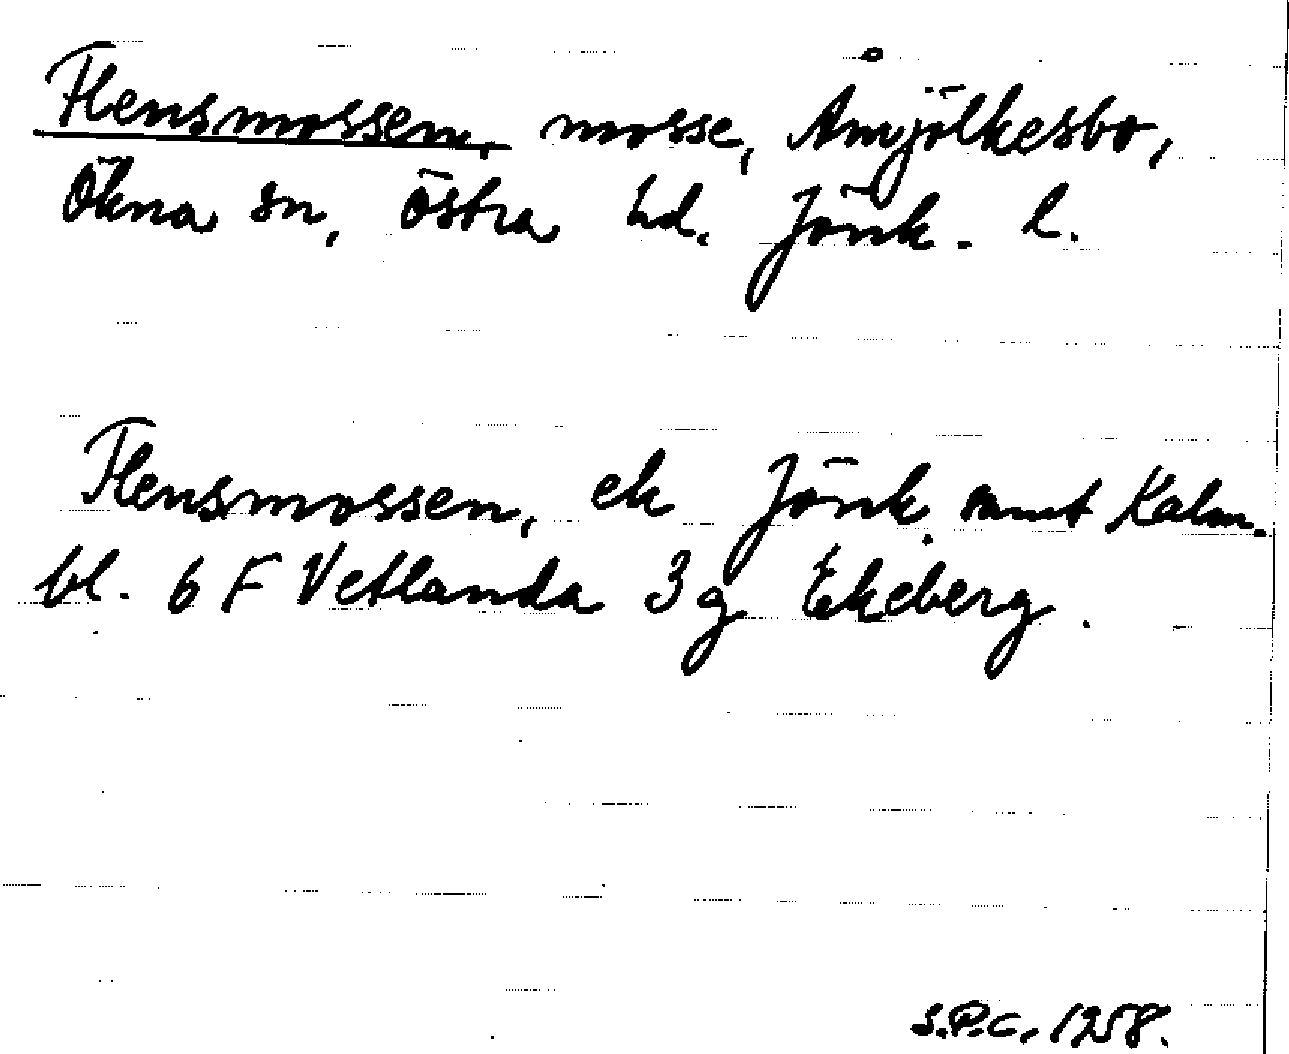 Flensmossen, mosse, Åmjölkesbo,
Ökna sn, Östra hd. Jönk. l.
Flensmossen, ek Jönk. samt Kalm.
bl. 6 F Vetlanda 3 g Ekeberg.
S.P.C. 1258.